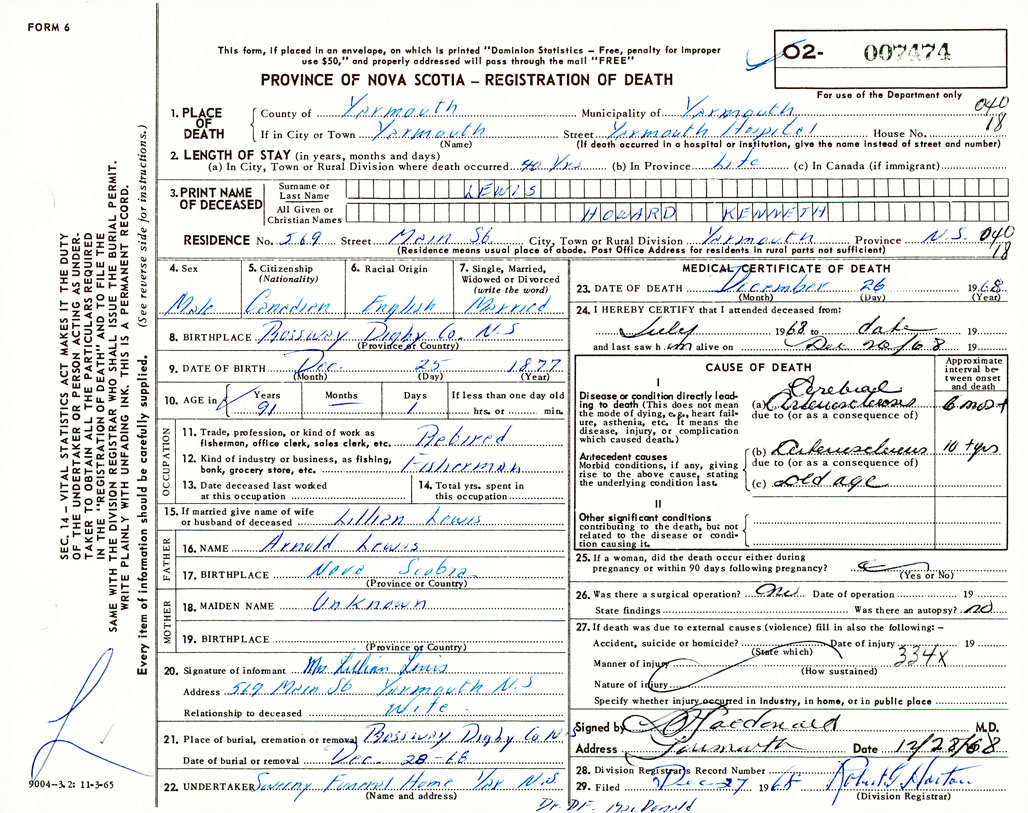 FORM 6
This form, if placed in an envelope, on which is printed "Dominion Statistics – Free, penalty for improper
use $50," and properly addressed will pass through the mail "FREE"
PROVINCE OF NOVA SCOTIA – REGISTRATION OF DEATH
02- 007474
For use of the Department only
040
18
1. PLACE OF DEATH
County of Yarmouth Municipality of Yarmouth
If in City or Town Yarmouth Street Yarmouth Hospital House No.
(Name) (If death occurred in a hospital or institution, give the name instead of street and number)
2. LENGTH OF STAY (in years, months and days)
(a) In City, Town or Rural Division where death occurred 40 Yrs (b) In Province Life (c) In Canada (if immigrant)
3. PRINT NAME OF DECEASED
Surname or Last Name LEWIS
All Given or Christian Names HOWARD KENNETH
RESIDENCE No. 569 Street Main St. City, Town or Rural Division Yarmouth Province N.S. 040
18
(Residence means usual place of abode. Post Office Address for residents in rural parts not sufficient)
4. Sex Male
5. Citizenship (Nationality) Canadian
6. Racial Origin English
7. Single, Married, Widowed or Divorced (write the word) Married
8. BIRTHPLACE Rossway Digby Co. N.S
(Province or Country)
9. DATE OF BIRTH Dec. 25 1877
(Month) (Day) (Year)
10. AGE in Years 91 Months Days 1 If less than one day old
hrs. or min.
OCCUPATION
11. Trade, profession, or kind of work as
fisherman, office clerk, sales clerk, etc. Retired
12. Kind of industry or business, as fishing,
bank, grocery store, etc. Fisherman
13. Date deceased last worked
at this occupation
14. Total yrs. spent in
this occupation
15. If married give name of wife
or husband of deceased Lillian Lewis
FATHER
16. NAME Arnold Lewis
17. BIRTHPLACE Nova Scotia
(Province or Country)
MOTHER
18. MAIDEN NAME Unknown
19. BIRTHPLACE
(Province or Country)
20. Signature of informant Mrs Lillian Lewis
Address 569 Main St Yarmouth N.S
Relationship to deceased Wife
21. Place of burial, cremation or removal Rossway Digby Co. N.S
Date of burial or removal Dec. 28-68
22. UNDERTAKER Sweeny Funeral Home Yar N.S
(Name and address)
MEDICAL CERTIFICATE OF DEATH
23. DATE OF DEATH December 26 1968
(Month) (Day) (Year)
24. I HEREBY CERTIFY that I attended deceased from:
July 1968 to date 19
and last saw him alive on Dec 26/68 19
CAUSE OF DEATH
Approximate interval between onset and death
I
Disease or condition directly leading
to death (This does not mean
the mode of dying, e.g., heart failure,
asthenia, etc. It means the
disease, injury, or complication
which caused death.)
Cerebral
(a) Arteriosclerosis 6 mos +
due to (or as a consequence of)
Antecedent causes
Morbid conditions, if any, giving
rise to the above cause, stating
the underlying condition last.
(b) Arteriosclerosis 10 + yrs
due to (or as a consequence of)
(c) old age
II
Other significant conditions
contributing to the death, but not
related to the disease or condition
causing it.
25. If a woman, did the death occur either during
pregnancy or within 90 days following pregnancy?
(Yes or No)
26. Was there a surgical operation? no Date of operation 19
State findings Was there an autopsy? no
27. If death was due to external causes (violence) fill in also the following: –
Accident, suicide or homicide? Date of injury 19
(State which) 334X
Manner of injury
(How sustained)
Nature of injury
Specify whether injury occurred in Industry, in home, or in public place
Signed by D F Macdonald M.D.
Address Yarmouth Date 12/28/68
28. Division Registrar's Record Number
29. Filed Dec 27 1968 Robert G. Horton
(Division Registrar)
Dr. D.F. MacDonald
SEC. 14 – VITAL STATISTICS ACT MAKES IT THE DUTY
OF THE UNDERTAKER OR PERSON ACTING AS UNDER-
TAKER TO OBTAIN ALL THE PARTICULARS REQUIRED
IN THE "REGISTRATION OF DEATH" AND TO FILE THE
SAME WITH THE DIVISION REGISTRAR WHO SHALL ISSUE THE BURIAL PERMIT.
WRITE PLAINLY WITH UNFADING INK. THIS IS A PERMANENT RECORD.
Every item of information should be carefully supplied. (See reverse side for instructions.)
9004-3.2: 11-3-65